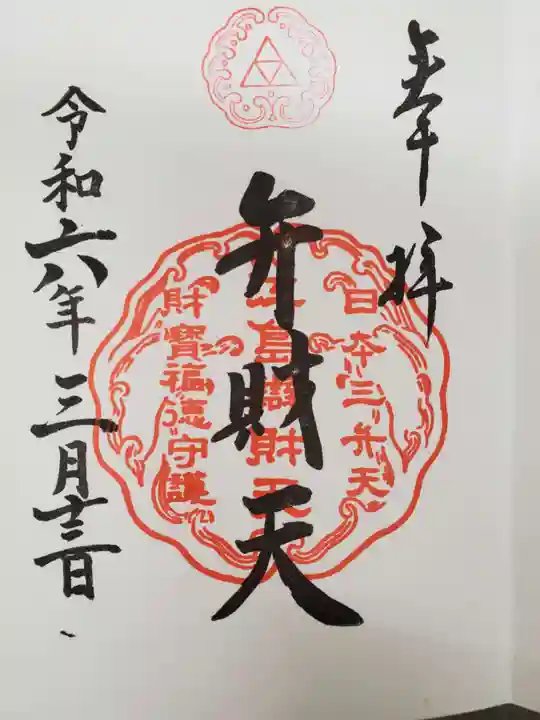 奉拝
日本三弁天
弁財天
財寶福徳守護
令和六年三月十三日